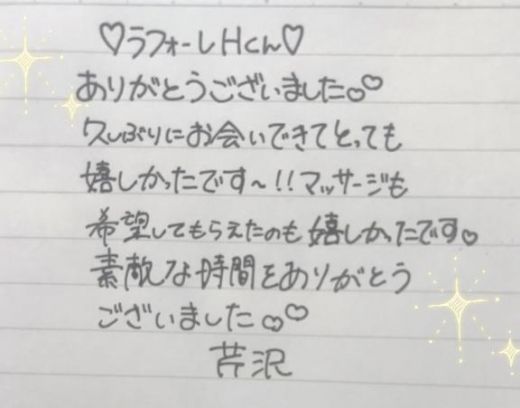 ♡ラフォーレHくん♡
ありがとうございました♡
久しぶりにお会いできてとっても
嬉しかったです〜!!マッサージも
希望してもらえたのも嬉しかったです♡
素敵な時間をありがとう
ございました♡
芹沢